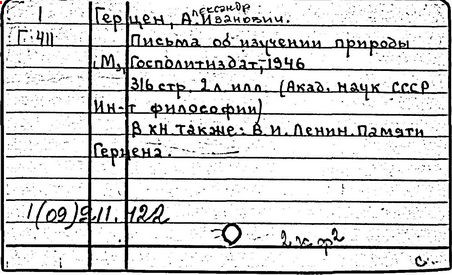 1
Герцен, Александр Иванович.
Г-411
Письма об изучении природы
М., Госполитиздат, 1946
316 стр. 2 л. илл. (Акад. наук СССР
Ин-т философии)
В кн. также: В.И. Ленин. Памяти
Герцена.
1(09)211.122
с.